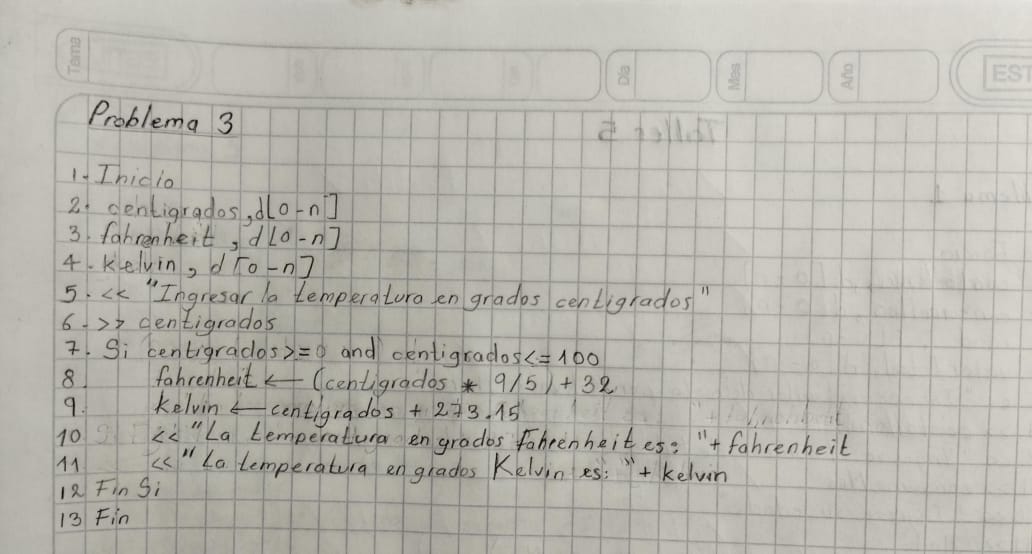 Tema
Día
Mes
Año
EST
Problema 3
Taller 5
1. Inicio
2. centigrados, d[0-n]
3. fahrenheit, d[0-n]
4. Kelvin, d[0-n]
5. << "Ingresar la temperatura en grados centigrados"
6. >> centigrados
7. Si centigrados>=0 and centigrados<=100
8. fahrenheit ← (centigrados * 9/5) + 32
9. Kelvin ← centigrados + 273.15
10 << "La temperatura en grados fahrenheit es: "+ fahrenheit
11 << "La temperatura en grados Kelvin es: "+ Kelvin
12 Fin Si
13 Fin